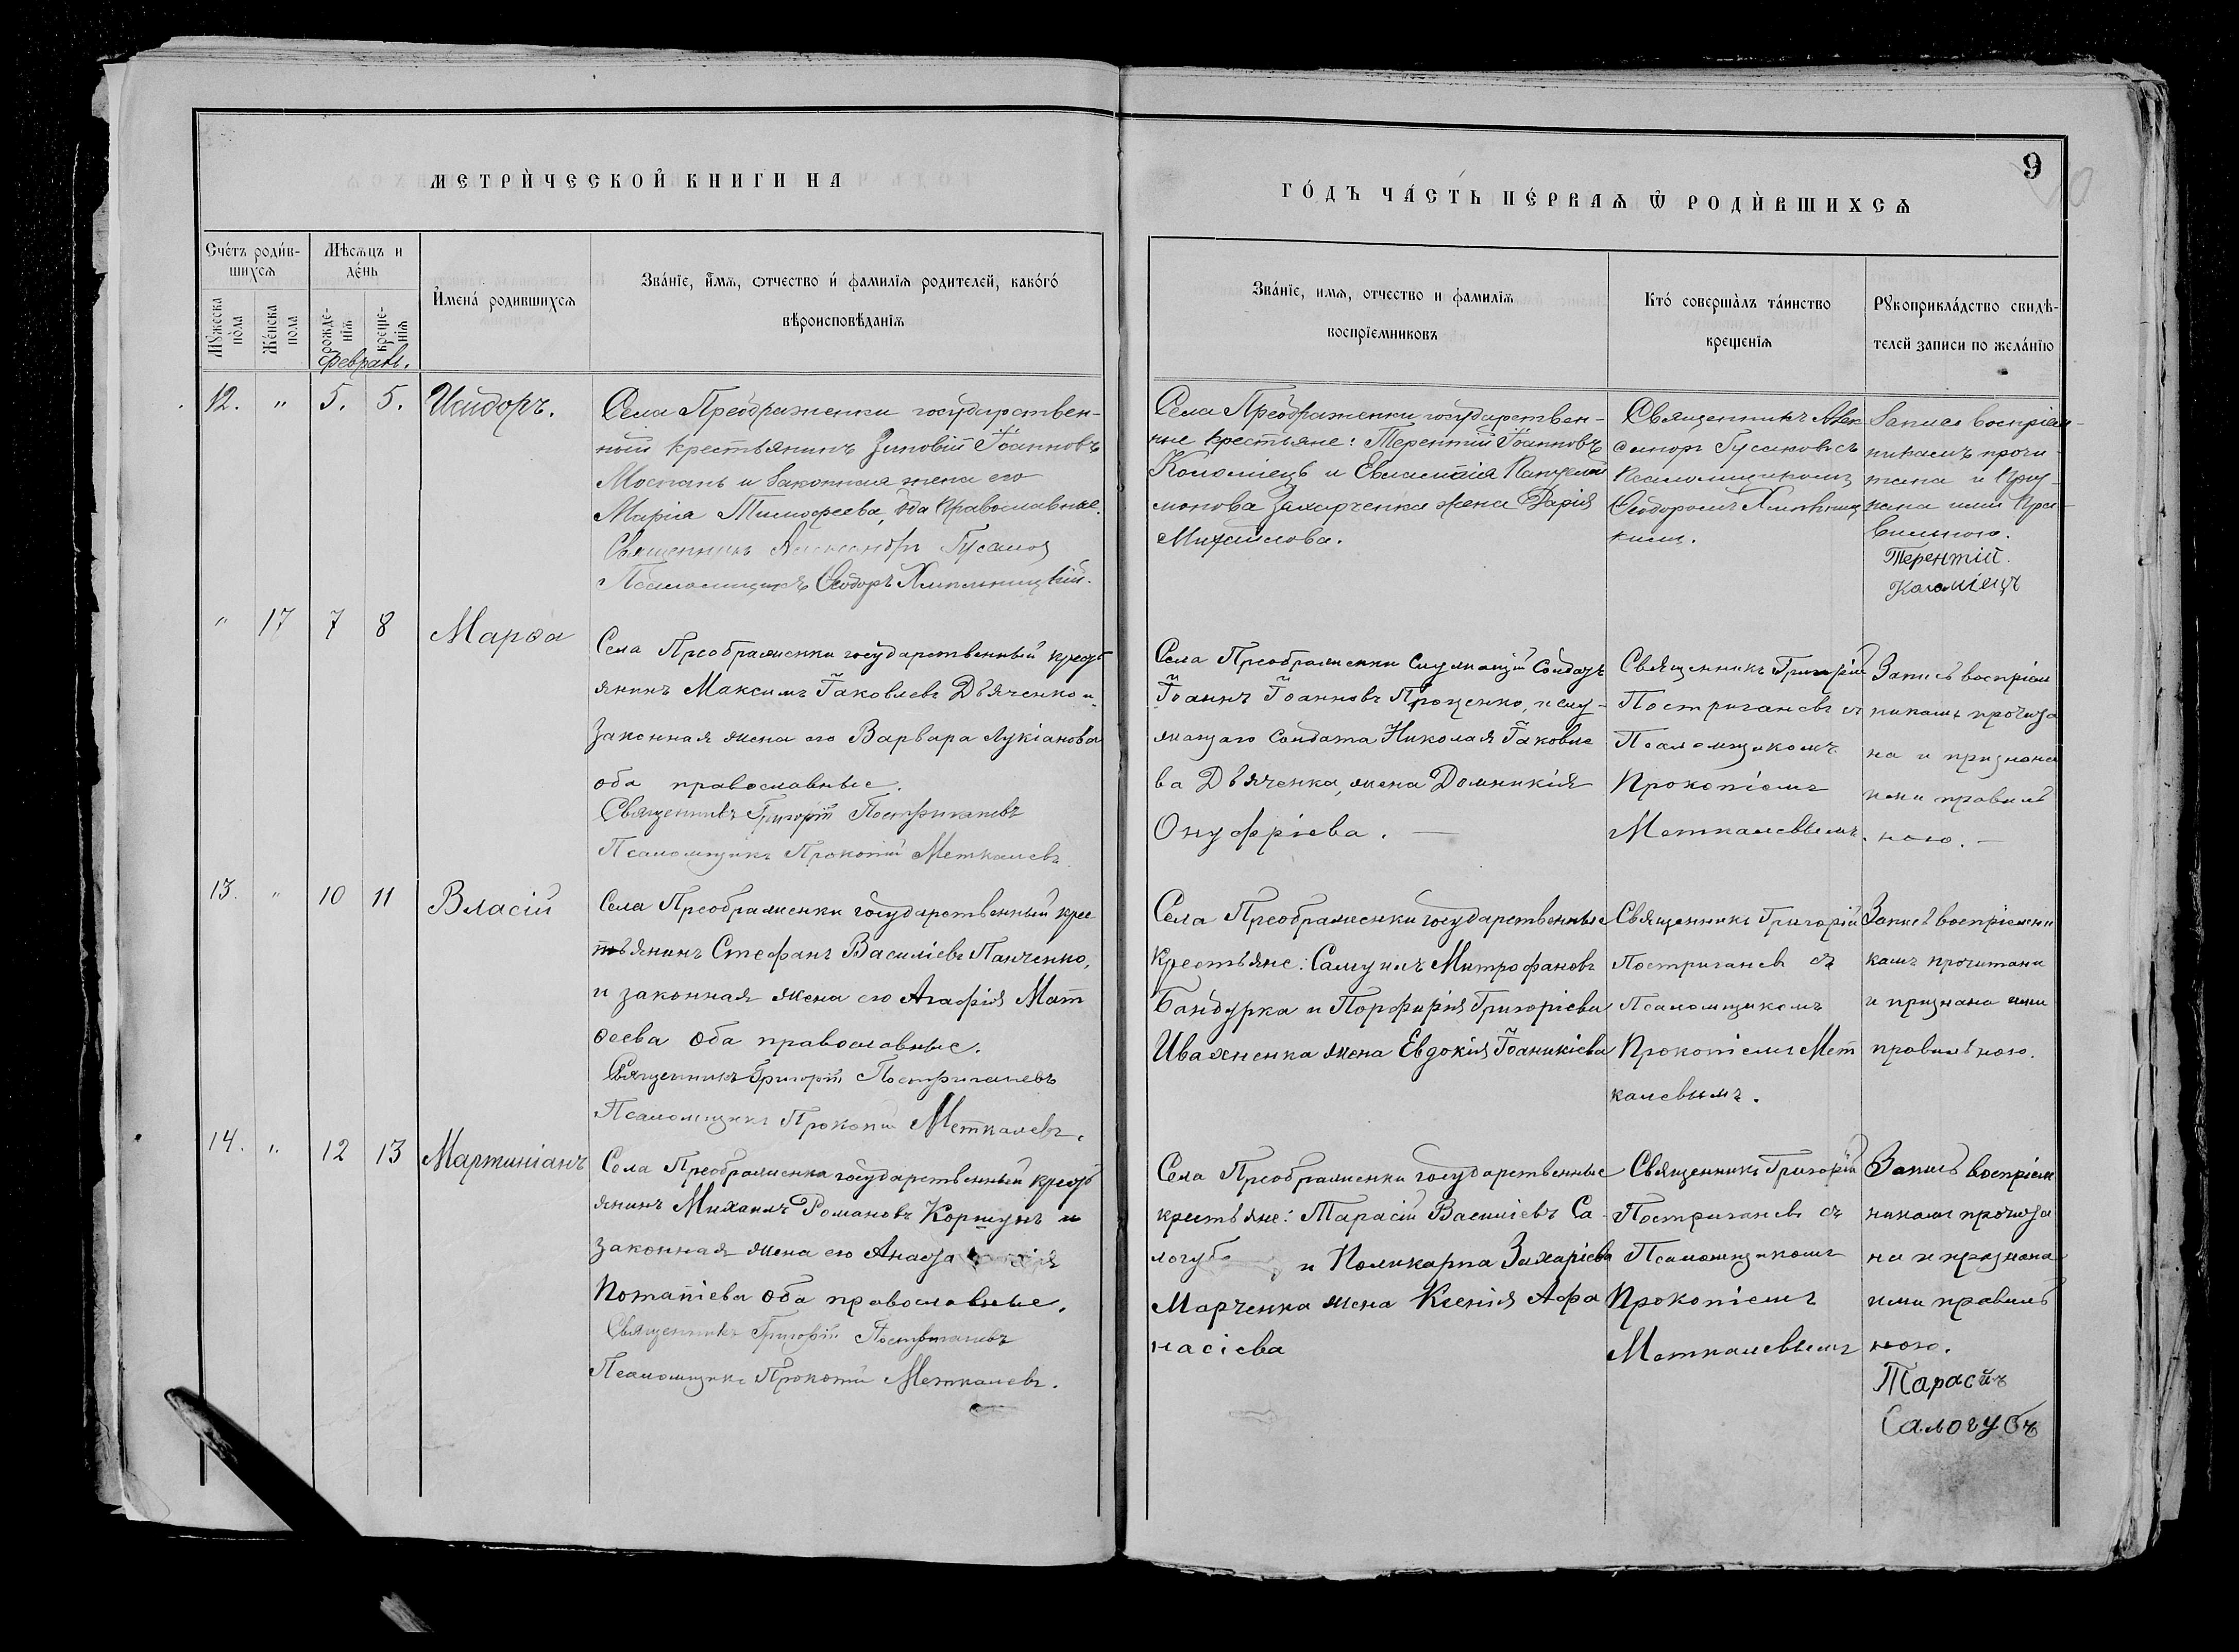 МЕТРИ́ЧЕСКОЙ КНИГИ НА
ГО́ДЪ ЧА́СТЬ ПЕ́РВАѦ Ѡ҆ РОДИ́ВШИХСѦ
9
Сче́тъ роди́в-
шихсѧ
Мѣсѧцъ и
де́нь
Мꙋжеска
по́ла
Же́нска
пола
рожде-
нїѧ
креще-
нїѧ
И҆мена́ родившихсѧ
Зва́нїе, и҆́мѧ, ѻтчество и҆ фамилїѧ родителей, како́го́
вѣроисповѣ́данїѧ
Зва́нїе, имѧ, отчество и фамилїѧ
воспрїемниковъ
Кто́ соверша́лъ та́инство
крещенїѧ
Рꙋкоприкла́дство свидѣ-
телей записи по жела́нїю
Февраль.
12. " 5. 5. Исидоръ.
Села Преображенки государствен-
ный крестьянинъ Зиновій Іоанновъ
Моспанъ и законная жена его
Марія Тимофеева, оба православные.
Священникъ Александръ Гусаковъ
Псаломщикъ Ѳеодоръ Хмельницкій.
Села Преображенки государствен-
ные крестьяне: Терентій Іоанновъ
Коломіецъ и Евлампія Пантелей
монова Захарченка жена Дарія
Михайлова.
Священникъ Алек
сандръ Гусаковъ съ
Псаломщикомъ
Ѳеодоромъ Хмельниц
кимъ.
Запись воспріем-
никамъ прочи-
тана и приз-
нана ими пра-
вильною.
Терентій
Коломіецъ
" 17 7 8 Марѳа
Села Преображенки государственный крест
янинъ Максимъ Іаковлевъ Дьяченко и
законная жена его Варвара Лукіанова
оба православные.
Священникъ Григорій Постригачевъ
Псаломщикъ Прокопій Меткалевъ
Села Преображенки служащій солдатъ
Іоаннъ Іоанновъ Проценко, и слу-
жащаго солдата Николая Іаковле
ва Дьяченка жена Домникія
Онуфріева. —
Священникъ Григорій
Постригачевъ съ
Псаломщикомъ
Прокопіемъ
Меткалевымъ.
Запись воспріем
никамъ прочита
на и признана
ими правиль
ною. —
13. " 10 11 Власій
Села Преображенки государственный крес
тьянинъ Стефанъ Василіевъ Панченко,
и законная жена его Агафія Мат
ѳеева оба православные.
Священникъ Григорій Постригачевъ
Псаломщикъ Прокопій Меткалевъ.
Села Преображенки государственные
крестьяне: Самуилъ Митрофановъ
Бандурка и Порфирія Григоріева
Ивахненка жена Евдокія Іоаникіева
Священникъ Григорій
Постригачевъ съ
Псаломщикомъ
Прокопіемъ Мет
калевымъ.
Запись воспріемни
камъ прочитана
и признана ими
правильною.
14. " 12 13 Мартиніанъ
Села Преображенка государственный крест
янинъ Михаилъ Романовъ Коршунъ и
законная жена его Анаста сія
Потапіева оба православные.
Священникъ Григорій Постригачевъ
Псаломщикъ Прокопій Меткалевъ.
Села Преображенки государственные
крестьяне: Тарасій Василіевъ Са-
логубъ и Поликарпа Захаріева
Марченка жена Ксенія Афа
насіева
Священникъ Григорій
Постригачевъ съ
Псаломщикомъ
Прокопіемъ
Меткалевымъ
Запись воспріем
никамъ прочита
на и признана
ими правиль
ною.
Тарасій
Салогубъ